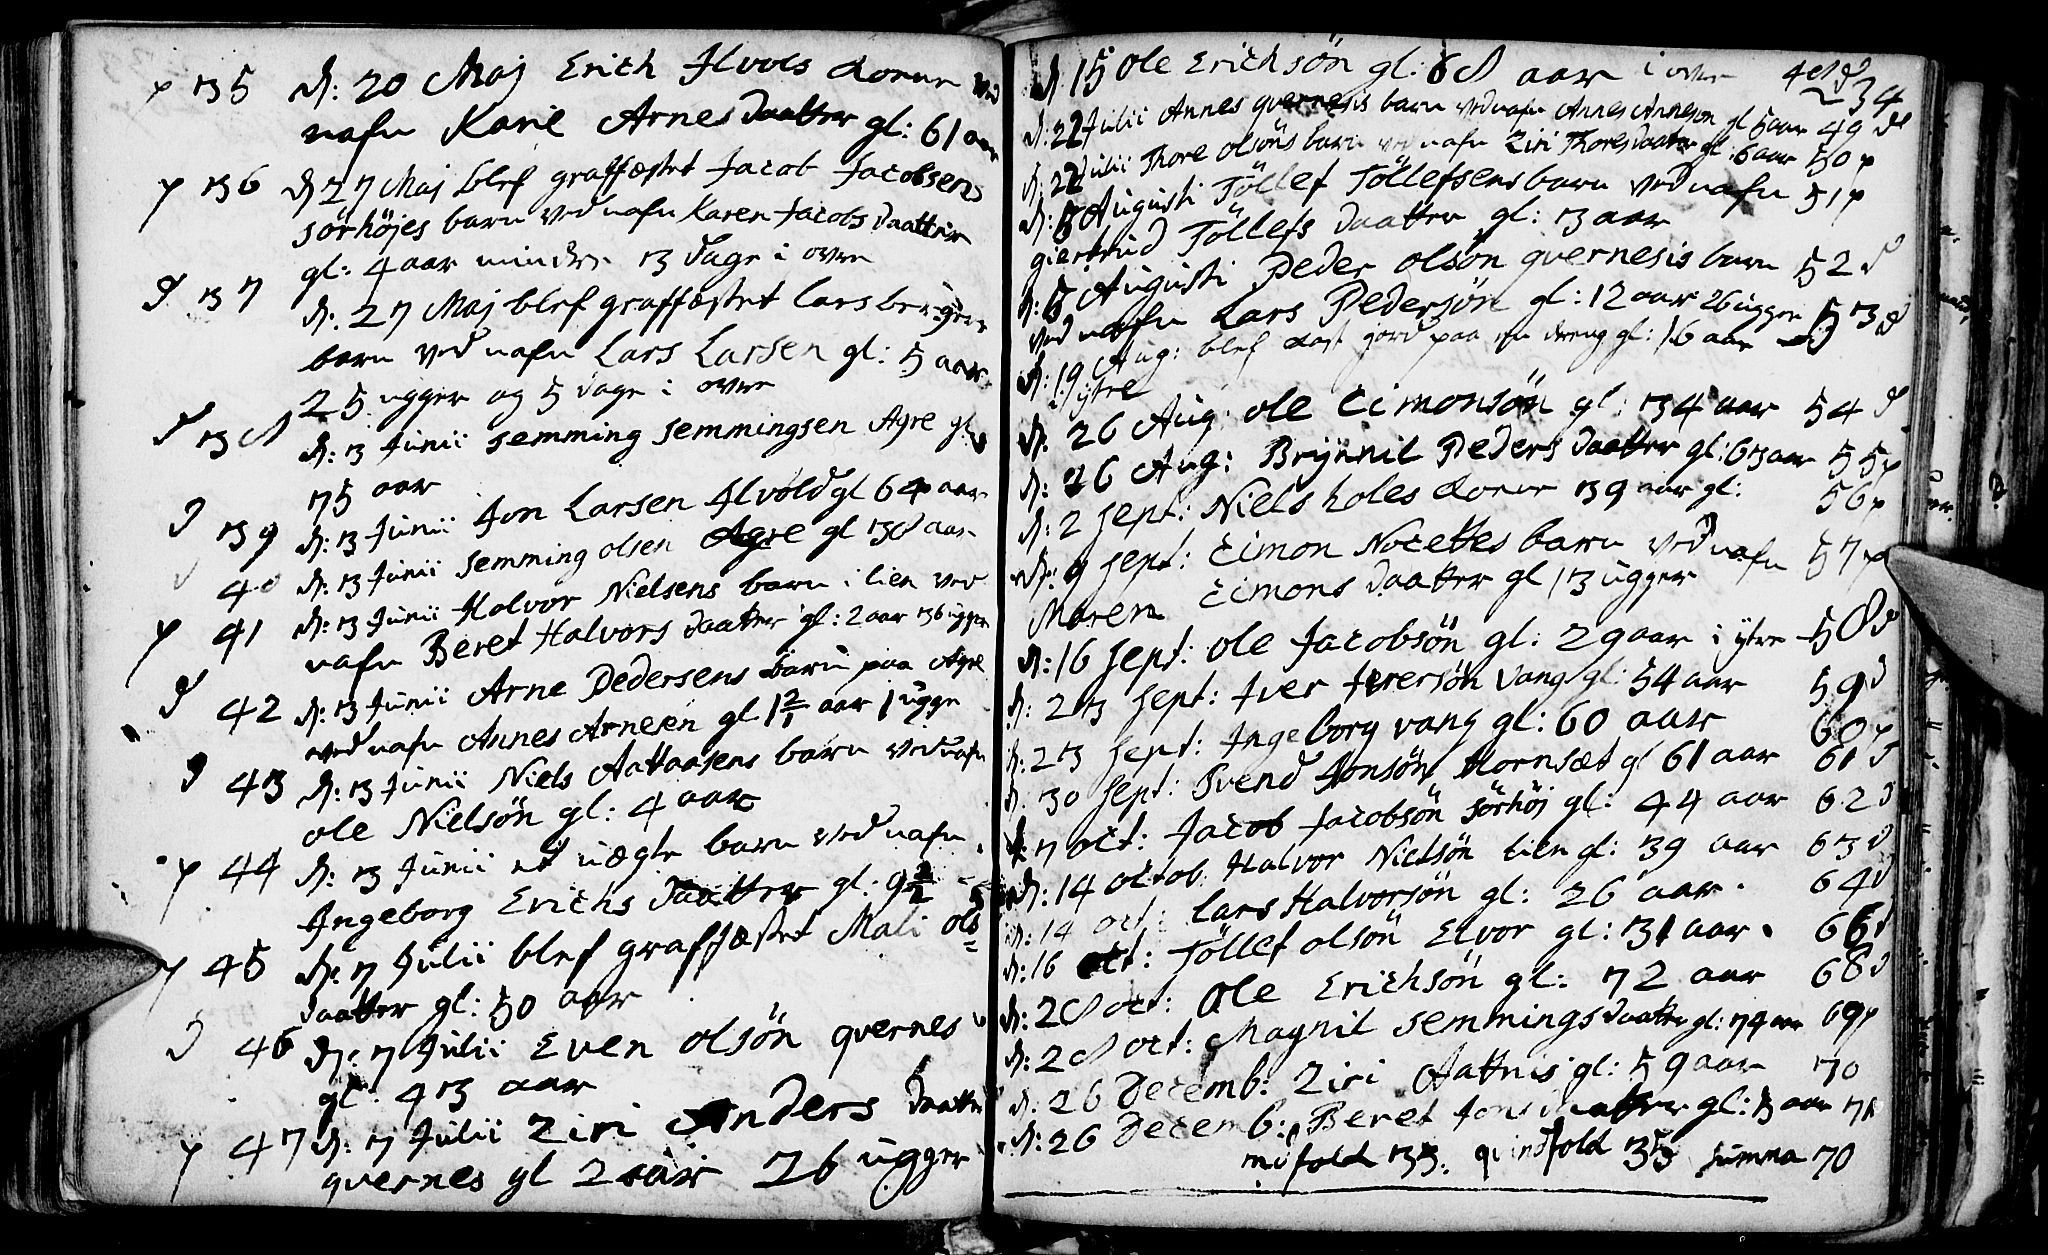 p 35 d: 20 Maj Erich Ilvols kone ved
nafn Karie Arnes daatter gl: 61 aar
p 36 d 27 Maj blef graffæstet Jacob Jacobsens
sörhöjes barn ved nafn Karen Jacobs daatter
gl: 4 aar mindre 3 dage i ovre
d 37 d. 27 Maj blef graffæstet Lars
barn ved nafn Lars Larsen gl: 5 aar
25 ugger og 5 dage i ovre
d 38 d: 3 Junii Semming Semmingsen Agre gl
75 aar
d 39 d: 3 Junii Jon Larsen Ilvold gl 64 aar
40 d: 3 Junii Semming olsen Agre gl 38 aar
p 41 d: 3 Junii Halvor Nielsens barn i lien ved
nafn Beret Halvors daatter gl: 2 aar 36 ugger
d 42 d: 3 Junii Arne Pedersens barn paa Agre
ved nafn Annes Arnesen gl 1 2/1 aar 1 ugge
d 43 d: 3 Junii Niels Aattaasens barn ved nafn
ole Nielsön gl: 4 aar
p 44 d: 3 Junii et uægte barn ved nafn
Ingeborg Erichs daatter gl: 9
p 45 d: 7 Julii blef graffæstet Mali ols=
daatter gl: 50 aar
d 46 d: 7 Julii Even olsön qvernes
gl: 43 aar
p 47 d: 7 Julii Ziri Anders daatter
qvernes gl 2 aar 26 ugger
d 15 ole Erichsön gl: 68 aar i ovre 48 d 34
d: 22 Julii Annes qvernesis barn ved nafn Annes Annesøn gl 5 aar 49 d
d: 22 Julii Thore olsöns barn ved nafn Ziri Thores daatter gl: 6 aar 50 p
d: 5 Augusti Töllef Töllefsens barn ved nafn 51 p
giertrud Töllefs daatter gl: 3 aar
d: 5 Augusti Peder olsön qvernesis barn 52 d
ved nafn Lars Pedersön gl: 12 aar 26 ugger 53 d
d: 19 Aug: blef kast jord paa en dreng gl: 16 aar
i ytre
d: 26 Aug: ole Eimonsön gl: 34 aar 54 d
d: 26 Aug: Brynnil Peders daatter gl: 63 aar 55 p
d: 2 Sept: Niels holes kone 39 aar gl: 56 p
d: 9 Sept: Eimon Nocettes barn ved nafn 57 p
Maren Eimons daatter gl 13 ugger
d: 16 Sept: ole Jacobsön gl: 29 aar i ytre 58 d
d: 23 Sept: Iver Iversön Vang gl: 54 aar 59 d
d: 23 Sept: Ingeborg vang gl: 60 aar 60 p
d: 30 Sept: Svend Jonsön Hornsæt gl 61 aar 61 d
d: 7 oct: Jacob Jacobsön sörhöj gl: 44 aar 62 d
d: 14 octob Halvor Nielsön lien gl: 39 aar 63 d
d: 14 oct: Lars Halvorsön gl: 26 aar 64 d
d: 16 oct: Töllef olsön Elvor gl: 31 aar 66 d
d: 28 oct: ole Erichsön gl: 72 aar 68 d
d: 28 oct: Magnil Semmings daatter gl: 74 aar 69 p
d: 26 Decemb: Ziri Aattnis gl: 59 aar 70
d: 26 Decemb: Beret Jons daatter gl: 3 aar 71
m fold 33. qvindfold 35 summa 70